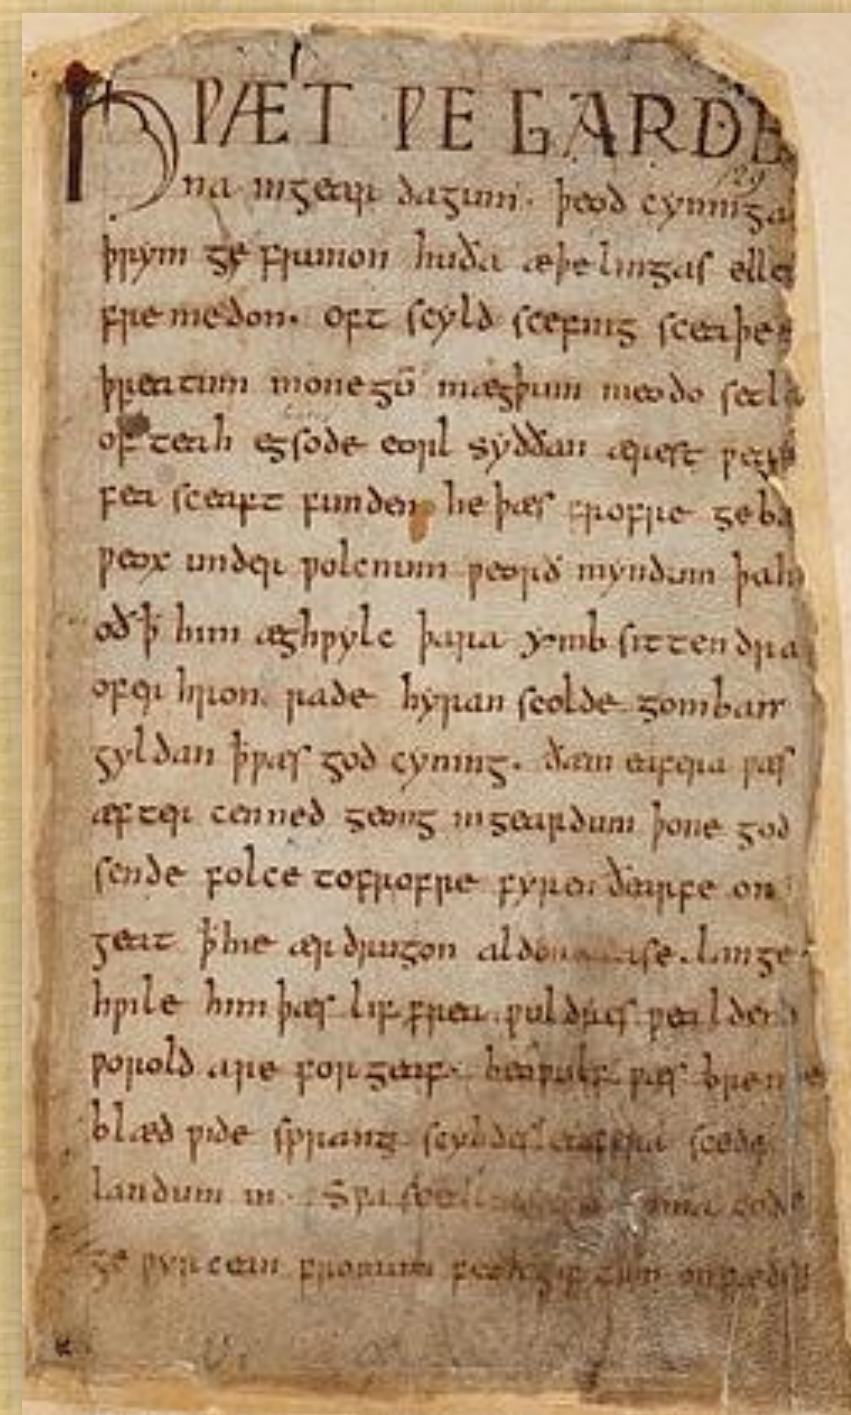 HǷÆT ǷE GARDE
129
na ingear dagum. þeod cyninga
þrym ge frunon huða æþelingas elle
fremedon. oft scyld scefing sceaþe
þreatum monegū mægþum meodo setla
of teah egsode eorl syððan ærest ƿear
fea sceaft funden he þæs frofre geba
ƿeox under ƿolcnum ƿeorð myndum þah
oð ꝥ him æghƿylc þara ymb sittendra
ofer hron rade hyran scolde gomban
gyldan ꝥ ƿæs god cyning. ðam eafera ƿæs
æfter cenned geong ingeardum þone god
sende folce tofrofre fyren ðearfe on
geat ꝥ hie ær drugon aldor ase. lange
hƿile him þæs lif frea ƿuldres ƿealdend
ƿorold are for geaf. beoƿulf ƿæs breme
blæd ƿide sprang scyldes eafera scede
landum in. Sƿa sceal guma gode
ge ƿyrcean fromum feoh giftum on fæder